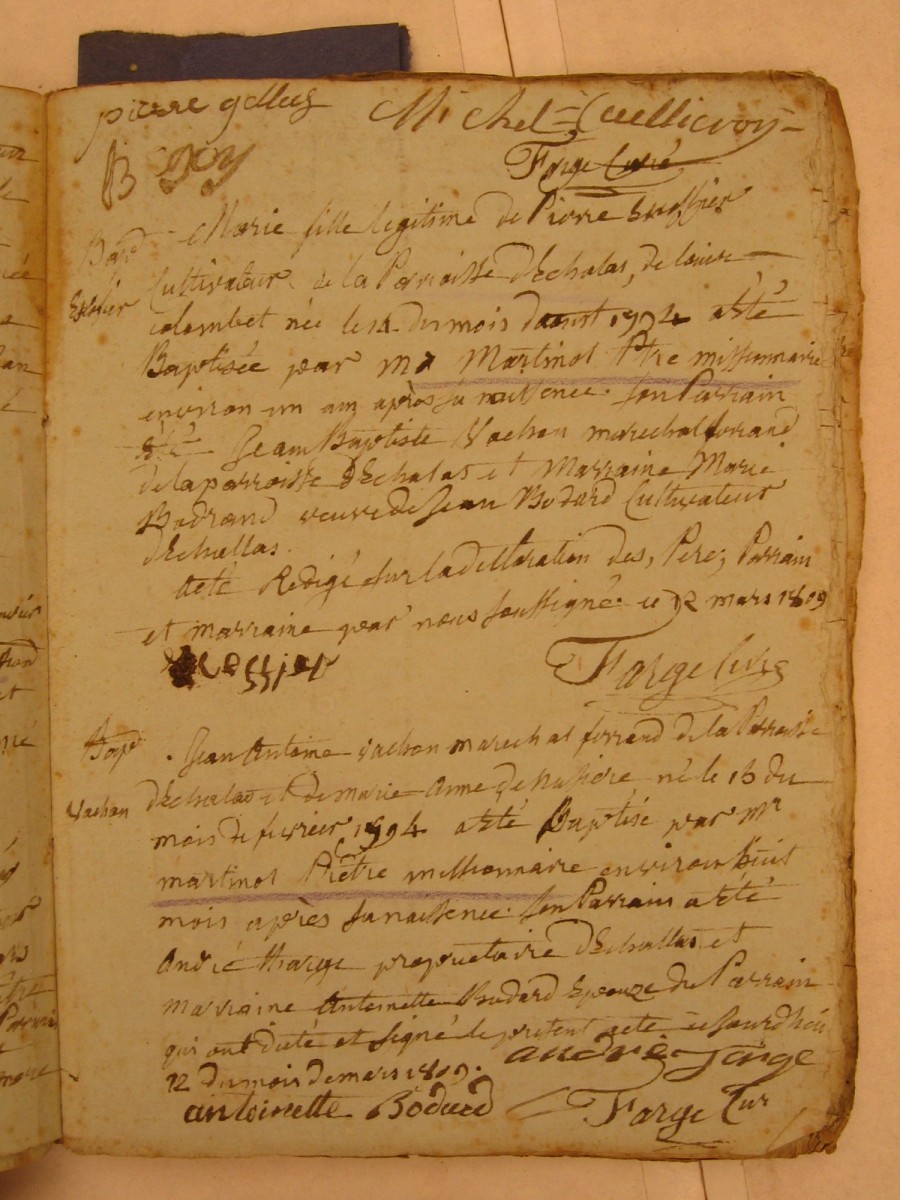 pierre
Michel
Farge Curé
B
Bap
Marie fille legitime de Pierre
Cultivateur de la Parroisse d'Echalas, de louise
colombet née le 14 du mois d'aoust 1794 a été
Baptisée par Mr Martinot Ptre missionnaire
environ un an après sa naissence. Son Parrain
été Jean Baptiste Vachon marechal ferrand
de la parroisse d'Echalas et Marraine Marie
veuve de Jean Bodard Cultivateur
d'Echallas.
Acte Redigé sur la declaration des, Pere, Parrain
et marraine par nous soussigné ce 12 mars 1809
Farge Curé
Bap
Vachon
Jean Antoine Vachon marechal ferrand de la Parroisse
d'Echalas et de marie Anne né le 15 du
mois de fevrier 1794 a été Baptisé par Mr
martinot Prêtre missionnaire environ huit
mois après sa naissence. Son Parrain a été
André propriétaire d'Echallas et
marraine Antoinette Bodard Epouze du Parrain
qui ont dicté et signé le present acte ce jourd'hui
12 du mois de mars 1809. andré
antoinette Bodard Farge Cur